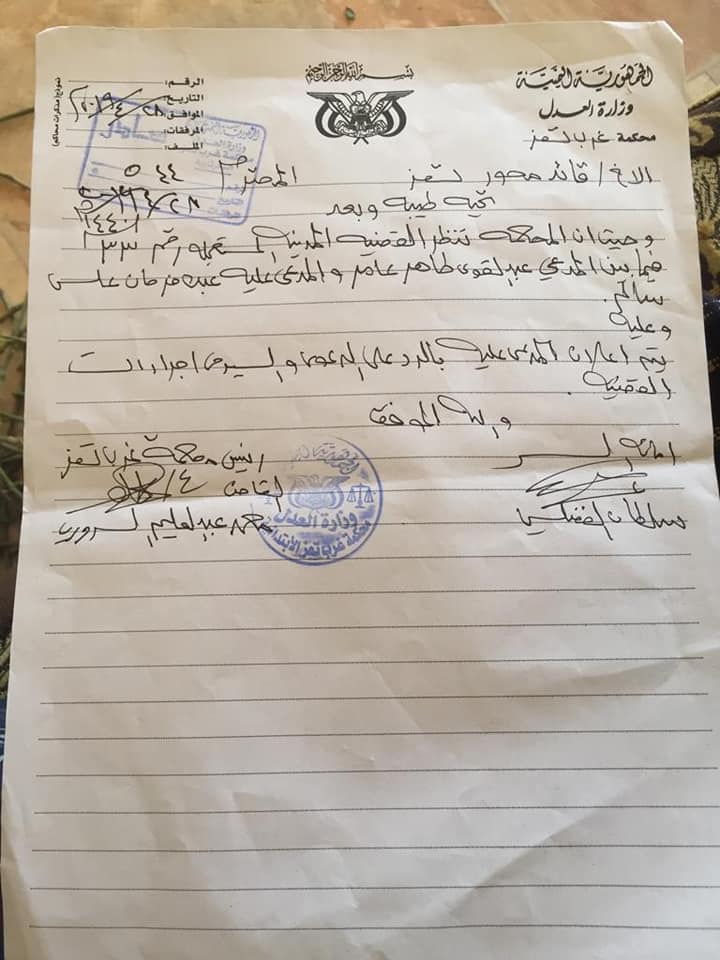 بسم الله الرحمن الرحيم
الجمهورية اليمنية
وزارة العدل
محكمة غرب تعز
الرقم:
التاريخ:
الموافق: ٢٨/٤/٢٠١٩
المرفقات:
الملف:
نموذج (مذكرات محاكم)
الاخ/ قائد محور تعز المحترم
تحيه طيبه وبعد
وحيث ان المحكمة تنظر القضيه المدنيه المستعجله رقم ٣٣
فيما بين المدعي عبدالقوى طاهر عامر والمدعى عليه عبده فرحان علي
سالم.
وعليه
يتم اعلان المدعى عليه بالرد على الدعوى والسير في اجراءات
القضيه.
والله الموفق
امين السر
رئيس محكمة غرب تعز
القاضي
سلطان
محمد عبدالعليم السروري
وزارة العدل
محكمة غرب تعز الابتدائية